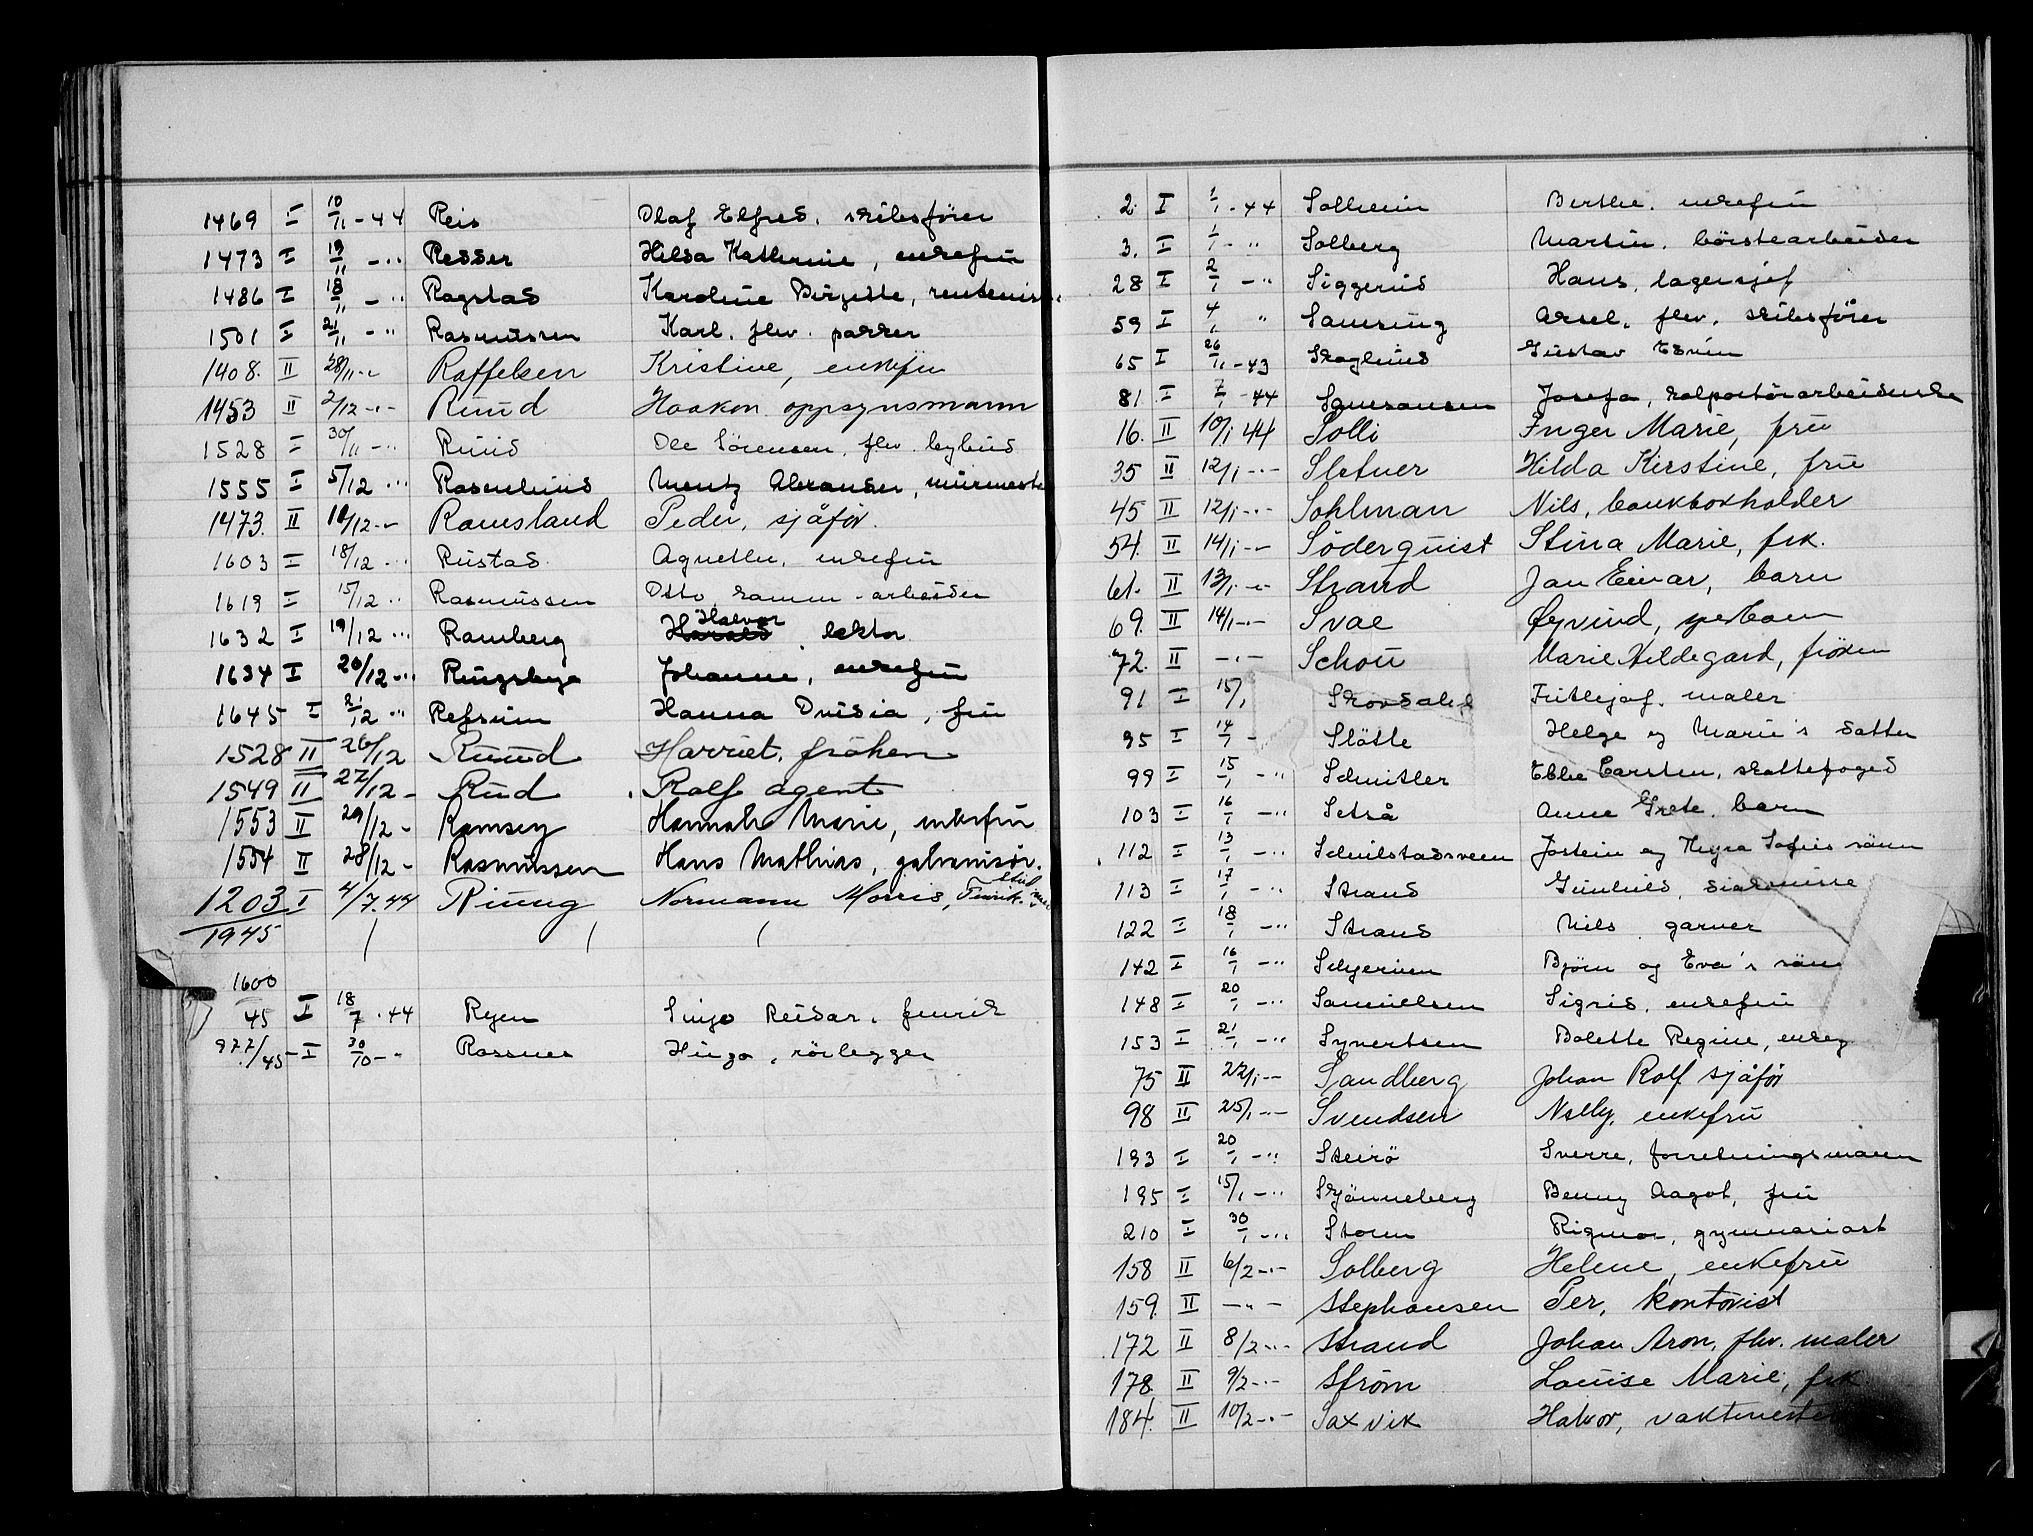 1469 I 10/11 - 44 Reis Olaf Elfred, skibsfører
1473 I 19/11 - " Redder Hilda Kathrine, enkefru
1486 I 18/11 - " Ragstad Karoline Birgitte,
1501 I 21/11 - " Rasmussen Karl, flev. pakker
1408. II 28/11 - " Raffelsen Kristine, enkefru
1453 II 2/12 - " - Ruud Haakon oppsynsmann
1528 I 30/11 - " Ruud Ole Sörensen, flv. bybud
1555 I 5/12 " Rosenlund Mentz Alexander, murmester
1473. II 10/12 - " Ramsland Peder, sjåfør.
1603 I 18/12 - " Rustad Agnethe, enkefru
1619 I 15/12 " Rasmussen Otto, -arbeider
1632 I 19/12 " Ramberg Harald Halvor lektor
1634 I 20/12 - " Ringsbye Johanne, enkefru
1645 I 21/12 " Refsum Hanna Ovidia, fru
1528 II 26/12 Ruud Harriet, frøken
1549 II 27/12 - Rud Rolf agent
1553 II 29/12 - Ramsey Hannah Marie, enkefru
1554 II 28/12 - Rasmussen Hans Mathias, galvanisør.
1203 I 4/7. 44 Riung Normann Morris, Fenrik.
1945
1600/45 I 18/7 . 44 Ryen Reidar, fenrik
977/45 - I 30/10 - " Rossnes Hugo, rörlegger
2. I 1/1 - 44 Solheim Berthe, enkefru
3. I 1/1 - " Solberg Martin, börstearbeider
28 I 2/1 - " Siggerud Hans, lagersjef
59 I 4/1 " Samsing Aksel, flev. skibsfører
65 I 26/11 - 43 Skoglund Gustav Edvin
81 I 7/1 - 44 Josefa,
16. II 10/1 44 Solli Inger Marie, fru
35 II 12/1 - " - Sletner Hilda Kirstine, fru
45 II 12/1 - " - Sohlman Nils, bankboxholder
54. II 14/1 - " - Söderquist Stina Marie, frk.
61. II 13/1 - " - Strand Jan Einar, barn
69. II 14/1 - " - Svae Øyvind, spebarn
72. II - " - Schou Marie Hildegard, frøken
91 I 15/1 Skovdahl Frithjof, maler
95 I 14/1 - Slötte Helge og Marie's datter
99 I 15/1 - " Schnitler Ebbe Carsten, skattefoged
103 I 16/1 - " Setså Anne Grete, barn
112 I 13/1 - " Schulstadsveen Jostein og Thyra Sofies sönn
113 I 17/1 - " Strand Gunhild, diakonisse
122 I 18/1 - " Strand Nils, garver
142 I 16/1 - " Schjerven Bjørn og Eva's sönn
148 I 20/1 - " Samuelsen Sigrid, enkefru
153 I 21/1 - " Syvertsen Bolette Regine,
75 II 22/1 - " Sandberg Johan Rolf sjåfør
98 II 25/1 - " - Svendsen Nelly, enkefru
193 I 20/1 - " Steirö Sverre, forretningsmann
195 I 15/1 - " Skjönneberg Benny Aagot, fru
210 I 30/1 - " Storm Rigmor, gymnasiast
158 II 6/2 - " - Solberg Helene, enkefru
159. II - " - Stephansen Per, kontorist
172 II 8/2 - " - Strand Johan Aron, flv. maler
178 II 9/2 - " - Strøm Louise Marie, frk
184. II 10/2 - " - Saxvik Halvor, vaktmester